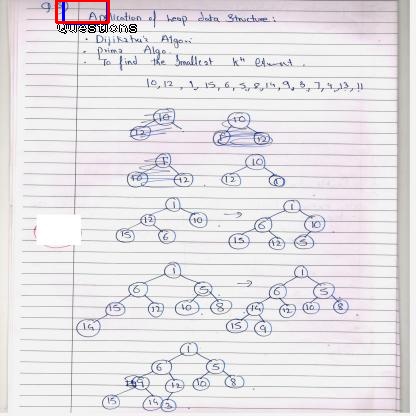 Questions
Application of heap data structure:
• Dijikatra's Algo:
• prims Algo.
• To find the Smallest kth Element.
10, 12, 1, 15, 6, 5, 8, 14, 9, 3, 7, 4, 13, 11
10
12
10
1 12
1
10 12
10
12 1
1
12 10
15 6
→
1
6 10
15 12 5
1
6 5
15 12 10 8
14
→
1
6 5
14 12 10 8
15 9
1
6 5
9 12 10 8
15 14 3